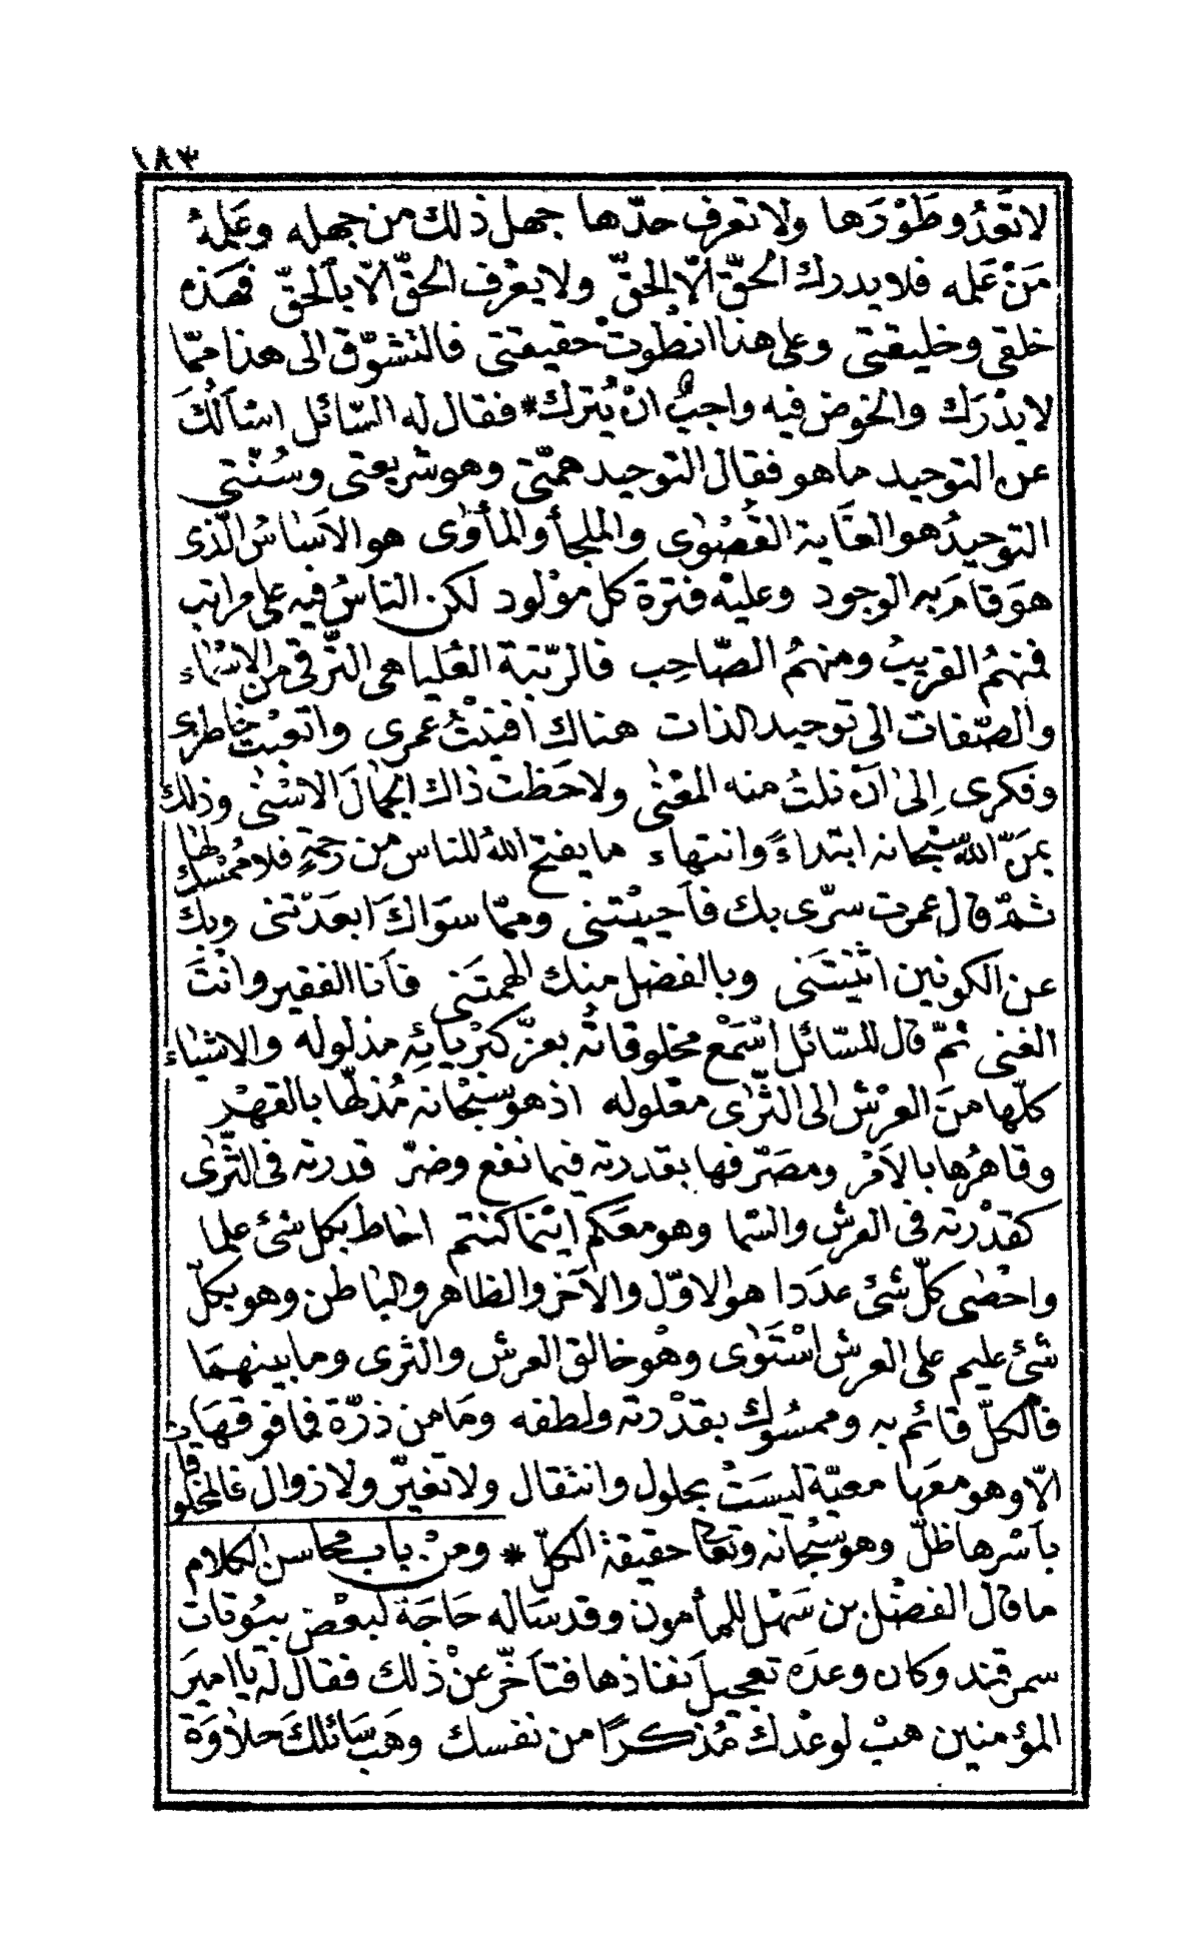 ١٨٣
لا تَعَدُ وطَوْرَها ولا تعرف حدّها جهل ذلك من جهله وعَلِمهُ
مَنْ عَلمه فلا يدرك الحقّ الّا بالحقّ ولا يعْرف الحقّ الّا بالحقّ فهذه
خلقى وخليقتى وعلى هذا انطوت حقيقتى فالتشوّق الى هذا ممّا
لا يدْرَك والخوض فيه واجبٌ انْ يُترك * فقال له السّائل اسْألكَ
عن التوحيد ما هو فقال التوحيد همّتى وهو شريعتى وسُنْتى
التوحيدُ هو الغاية القُصْوٰى والملجأ والمأوٰى هو الاَسَاسُ الّذى
هوَ قامَ به الوجود وعليْه فترة كل موْلود لكن النّاسُ فيه على مراتب
فمنهمُ القريبُ ومنهمُ الصّاحِب فالرّتبة العُليا هى الترّقى من الاسْماء
والصّفات الى توحيد الذات هناك افنيْتُ عمرى واتعبْت خاطرى
وفكرى اِلىٰ اَنْ نلتُ منه المعْنٰى ولاحَظْت ذاك الجمالَ الاسْنٰى وذلك
بمَنّ اللّه سبْحانه ابتداءً وانتهاء ما يفتح اللهُ للناس من رحْمَةٍ فلا مُمْسك لها
ثمّ قال عمرت سرّى بك فاَحييْتنى وممّا سوَاكَ ابعَدْتنى وبك
عن الكونين اثنيْتَنى وبالفضل منك الهمتَنى فاَنا الفقير وانْتَ
الغنى ثمّ قال للسّائل اسْمَع مخلوقاته بعزّ كبْريائِه مذلوله والاشياء
كلّها منَ العرْش الى الثّرٰى معْلوله اذ هو سبْحانه مُذلّها بالقهْر
وقاهرُها بالاَمْر ومصَرّفها بقدرته فيما نفع وضرّ قدرته فى الثّرٰى
كقدْرته فى العرش والسّما وهو معَكم ايْنما كنتم احاط بكل شئ علما
واحْصٰى كلّ شئ عدَدا هو الاوّل والآخر والظاهر والباطن وهو بكلّ
شئ عليم على العرش اسْتَوٰى وهْو خالق العرش والثرى وما بينهمَا
فالكلّ قائم به وممسُوك بقدْرته ولطفه وما من ذرّة فما فوقها
الّا وهو معَها معيّة ليسَتْ بحلول وانتقال ولا تغيّر ولا زوال فالمخلوقات
بأسْرها ظلّ وهو سبْحانه وتعالى حقيقة الكلّ * ومنْ باب محاسن الكلام
ما قال الفضْل بن سَهْل للمأمون وقد سَاله حَاجَة لبعْض بيُوتات
سمرقند وكان وعدَه تعجيل نفاذها فتأخّر عنْ ذلك فقال له يا اميرَ
المؤمنين هبْ لوعْدك مُذكرًا من نفسك وهَب سَائلكَ حلاوَة